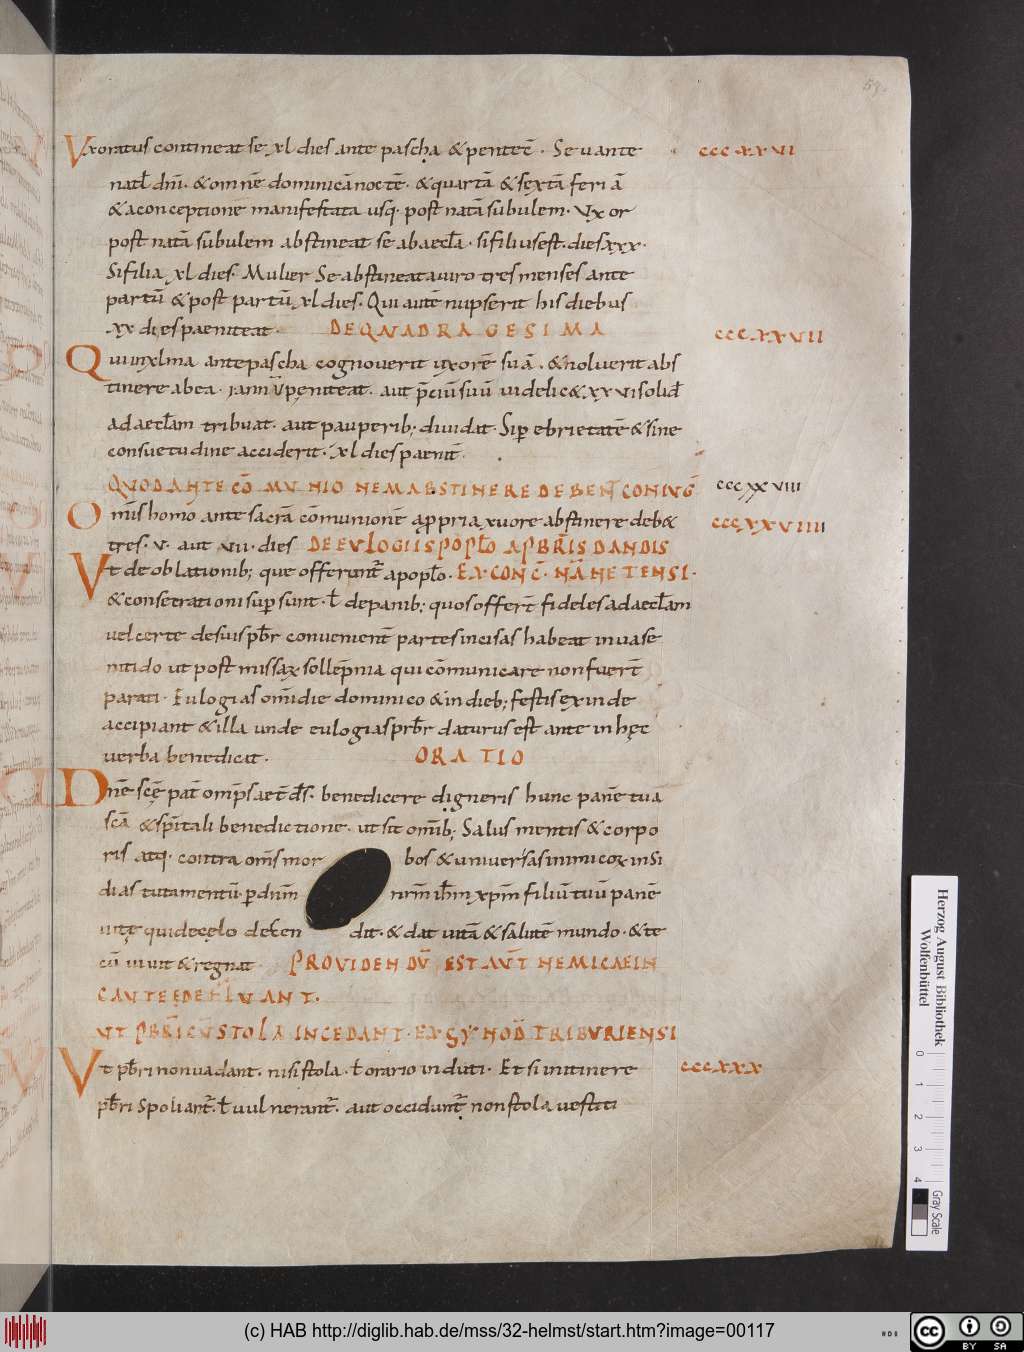 59.
Vxoratus contineat se xl dies ante pascha & pentec̄. Se u ante cccxxvi
natł dn̄i. & omnē dominicā noctē. & quartā & sextā feriā
& a conceptionē manifestata usq. post natā subulem. Vxor
post natā subulem abstineat se ab aecła. si filius est. dies xxx.
Si filia xl dies. Mulier Se abstineat a uiro tres menses ante
partū & post partū xl dies. Qui autē nupserit his diebus
xx dies paeniteat. DE QVADRAGESIMA cccxxvii
Qui in xlma ante pascha cognouerit uxorē suā. & noluerit abs
tinere ab ea. i annū peniteat. aut p̄ciū suū uidelic& xxvi solid̄
ad aecłam tribuat. aut pauperib; diuidat. Si p ebrietatē & sine
consuetudine acciderit. xl dies paenit̄.
QVOD ANTE CŌMVNIONEM ABSTINERE DEBENT CONIVḠ cccxxviii
Om̄is homo ante sacrā cōmunionē a ppria uxore abstinere deb& cccxxviiii
tres. v. aut vii. dies DE EVLOGIIS POPŁO A PBR̄IS DANDIS
Vt de oblationib; que offerunt̄ a popło. EX CONC̄. NĀNETENSI.
& consecrationi sup sunt. ł de panib; quos offert̄ fideles ad aecłam
uel certe de suis pbr̄ conuenient̄ partes incisas habeat in uase
nitido ut post missax sollēpnia qui cōmunicare non fuer̄t
parati. Eulogias om̄i die dominico & in dieb; festis exinde
accipiant & illa unde eulogias prbr̄ daturus est ante in hęc
uerba benedicat. ORATIO
Dn̄e scē pat̄ omp̄s aet̄ d̄s. benedicere digneris hunc panē tuā
scā & sp̄itali benedictione. ut sit om̄ib; Salus mentis & corpo
ris atq. contra om̄s mor bos & uniuersas inimicox insi
dias tutamentū. p dn̄m nr̄m ihm̄ xpm̄ filiū tuū panē
uitę qui de cęlo descen dit. & dat uitā & salutē mundo. & te
cū uiuit & regnat PROVIDENDV̄ EST AVT̄ NE MICAE IN
CAVTE EDEFLVANT.
VT PBR̄I CV̄ STOLA INCEDANT. EX SYNOD̄ TRIBVRIENSI
Vt pbr̄i non uadant. nisi stola. ł orario induti. Et si in itinere cccxxx
pbr̄i spoliant̄. ł uulnerant̄. aut occidunt̄ non stola uestiti
Herzog August Bibliothek
Wolfenbüttel
0 1 2 3 4
Gray Scale
(c) HAB http://diglib.hab.de/mss/32-helmst/start.htm?image=00117
cc BY SA